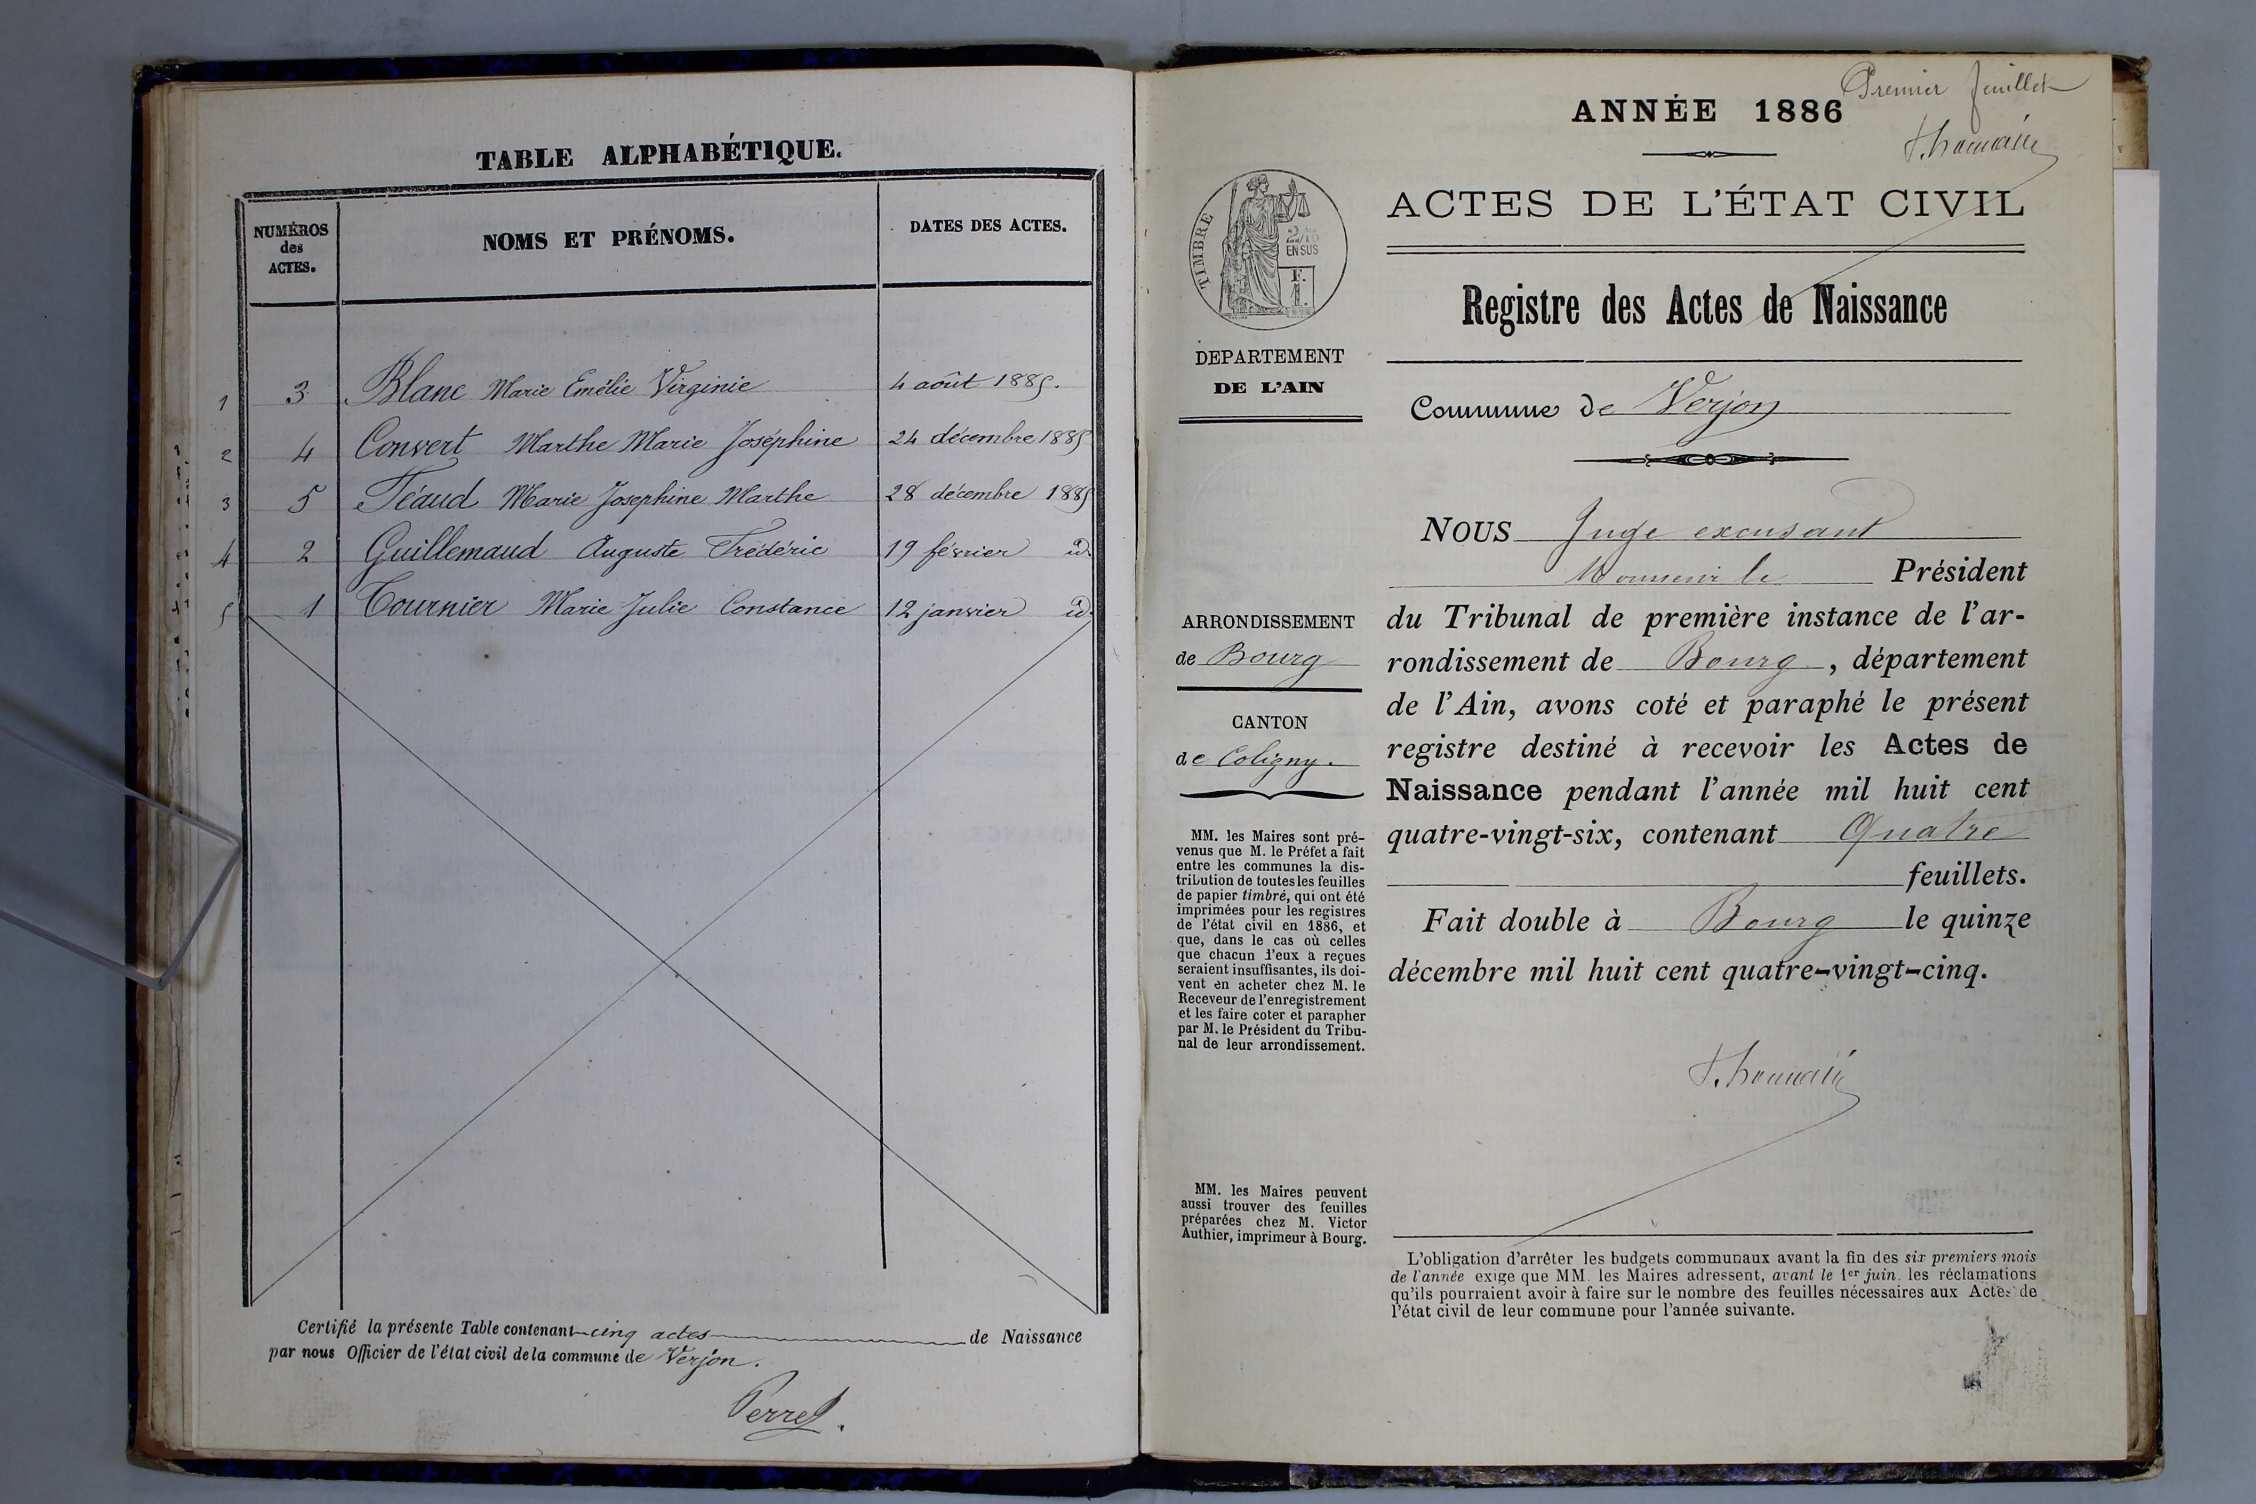 TABLE ALPHABÉTIQUE.
NUMÉROS des ACTES.
NOMS ET PRÉNOMS.
DATES DES ACTES.
1 3 Blanc Marie Emélie Virginie 4 août 1885.
2 4 Convert Marthe Marie Joséphine 24 décembre 1885
3 5 Féaud Marie Josephine Marthe 28 décembre 1885
4 2 Guillemaud Auguste Frédéric 19 février id.
5 1 Tournier Marie Julie Constance 12 janvier id.
Certifié la présente Table contenant cinq actes de Naissance
par nous Officier de l'état civil de la commune de Verjon.
Perret.
Premier feuillet
ANNÉE 1886
ACTES DE L'ÉTAT CIVIL
TIMBRE
2/10
EN SUS
F.
1.
Registre des Actes de Naissance
DEPARTEMENT
DE L'AIN
Commune de Verjon
ARRONDISSEMENT
de Bourg
CANTON
de Coligny.
MM. les Maires sont pré-
venus que M. le Préfet a fait
entre les communes la dis-
tribution de toutes les feuilles
de papier timbré, qui ont été
imprimées pour les registres
de l'état civil en 1886, et
que, dans le cas où celles
que chacun d'eux a reçues
seraient insuffisantes, ils doi-
vent en acheter chez M. le
Receveur de l'enregistrement
et les faire coter et parapher
par M. le Président du Tribu-
nal de leur arrondissement.
MM. les Maires peuvent
aussi trouver des feuilles
préparées chez M. Victor
Authier, imprimeur à Bourg.
NOUS Juge excusant
Monsieur le Président
du Tribunal de première instance de l'ar-
rondissement de Bourg, département
de l'Ain, avons coté et paraphé le présent
registre destiné à recevoir les Actes de
Naissance pendant l'année mil huit cent
quatre-vingt-six, contenant Quatre
feuillets.
Fait double à Bourg le quinze
décembre mil huit cent quatre-vingt-cinq.
L'obligation d'arrêter les budgets communaux avant la fin des six premiers mois
de l'année exige que MM. les Maires adressent, avant le 1er juin. les réclamations
qu'ils pourraient avoir à faire sur le nombre des feuilles nécessaires aux Actes de
l'état civil de leur commune pour l'année suivante.